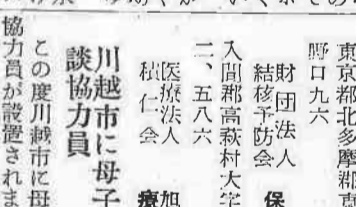 東京都北多摩郡東
野口九六
財団法人
結核予防会 保
入間郡高萩村大字
二、五八六
医療法人 旭
積仁会 療
川越市に母子
談協力員
この度川越市に母
協力員が設置されま